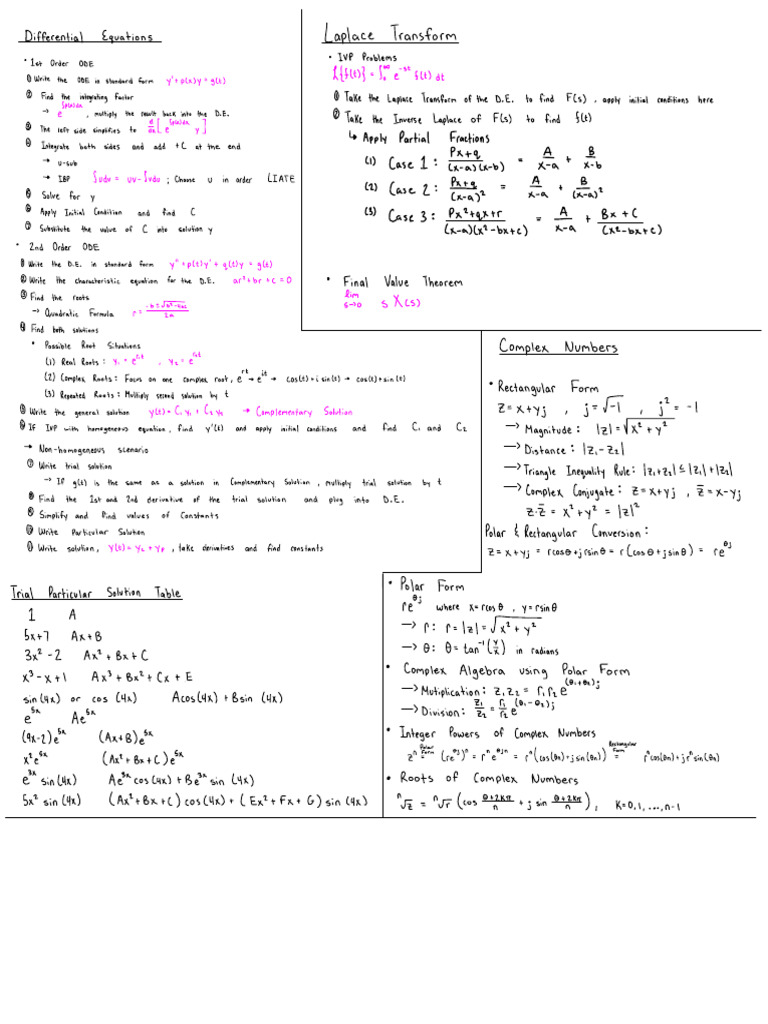 Differential Equations
• 1st Order ODE
① Write the ODE in standard form y'+p(x)y=g(t)
② Find the integrating Factor
→ e^{∫p(x)dx}, multiply the result back into the D.E.
③ The left side simplifies to d/dx [e^{∫p(x)dx} y]
④ Integrate both sides and add +C at the end
→ u-sub
→ IBP ∫udv = uv-∫vdu ; Choose u in order LIATE
⑤ Solve for y
⑥ Apply Initial Condition and find C
⑦ Substitute the value of C into solution y
• 2nd Order ODE
① Write the D.E. in standard form y''+p(t)y'+q(t)y=g(t)
② Write the characteristic equation for the D.E. ar²+br+c=0
③ Find the roots
→ Quadratic Formula r = (-b±√(b²-4ac))/2a
④ Find both solutions
• Possible Root Situations
(1) Real Roots: y₁=e^{r₁t}, y₂=e^{r₂t}
(2) Complex Roots: Focus on one complex root, e^{rt}→e^{it} → cos(t)+i sin(t) → cos(t)+sin(t)
(3) Repeated Roots: Multiply second solution by t
⑤ Write the general solution y(t)=C₁y₁+C₂y₂ → Complementary Solution
⑥ If IVP with homogeneous equation, find y'(t) and apply initial conditions and find C₁ and C₂
→ Non-homogeneous scenario
⑦ Write trial solution
→ If g(t) is the same as a solution in Complementary Solution, multiply trial solution by t
⑧ Find the 1st and 2nd derivative of the trial solution and plug into D.E.
⑨ Simplify and find values of Constants
⑩ Write Particular Solution
⑪ Write solution, y(t)=y₂+yₚ, take derivatives and find constants
Laplace Transform
• IVP Problems
L{f(t)} = ∫₀^∞ e^{-st} f(t) dt
① Take the Laplace Transform of the D.E. to find F(s), apply initial conditions here
② Take the Inverse Laplace of F(s) to find f(t)
↳ Apply Partial Fractions
(1) Case 1: (Px+q)/((x-a)(x-b)) = A/(x-a) + B/(x-b)
(2) Case 2: (Px+q)/(x-a)² = A/(x-a) + B/(x-a)²
(3) Case 3: (Px²+qx+r)/((x-a)(x²-bx+c)) = A/(x-a) + (Bx+C)/(x²-bx+c)
• Final Value Theorem
lim s→0 s X(s)
Complex Numbers
• Rectangular Form
z=x+yj , j=√-1 , j²=-1
→ Magnitude: |z|=√(x²+y²)
→ Distance: |z₁-z₂|
→ Triangle Inequality Rule: |z₁+z₂|≤|z₁|+|z₂|
→ Complex Conjugate: z=x+yj , z̄=x-yj
z·z̄ = x²+y² = |z|²
Polar & Rectangular Conversion:
z=x+yj = rcosθ+jrsinθ = r(cosθ+jsinθ) = re^{θj}
• Polar Form
re^{θj} where x=rcosθ , y=rsinθ
→ r: r=|z|=√(x²+y²)
→ θ: θ=tan⁻¹(y/x) in radians
• Complex Algebra using Polar Form
→ Mutiplication: z₁z₂ = r₁r₂e^{(θ₁+θ₂)j}
→ Division: z₁/z₂ = r₁/r₂ e^{(θ₁-θ₂)j}
• Integer Powers of Complex Numbers
zⁿ =(Polar Form) (re^{θj})ⁿ = rⁿe^{θjn} = rⁿ(cos(θn)+jsin(θn)) =(Rectangular Form) rⁿcos(θn)+jrⁿsin(θn)
• Roots of Complex Numbers
ⁿ√z = ⁿ√r (cos (θ+2kπ)/n + j sin (θ+2kπ)/n), K=0,1,...,n-1
Trial Particular Solution Table
1 A
5x+7 Ax+B
3x²-2 Ax²+Bx+C
x³-x+1 Ax³+Bx²+Cx+E
sin(4x) or cos(4x) Acos(4x)+Bsin(4x)
e^{5x} Ae^{5x}
(9x-2)e^{5x} (Ax+B)e^{5x}
x²e^{5x} (Ax²+Bx+C)e^{5x}
e^{3x} sin(4x) Ae^{3x}cos(4x)+Be^{3x}sin(4x)
5x² sin(4x) (Ax²+Bx+C)cos(4x)+(Ex²+Fx+G)sin(4x)